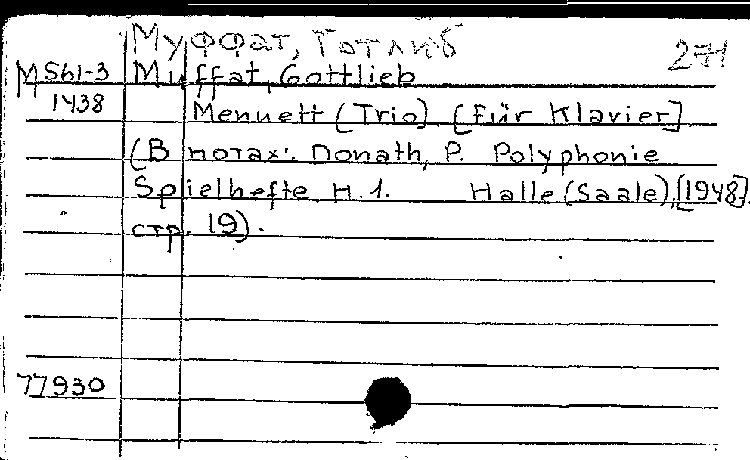 Муффат, Готлиб
271
М 561-3 Muffat, Gottlieb
1438 Menuett (Trio) [für Klavier]
(В нотах: Donath, P. Polyphonie
Spielhefte H. 1. Halle (Saale), [1948].
стр. 19).
77930